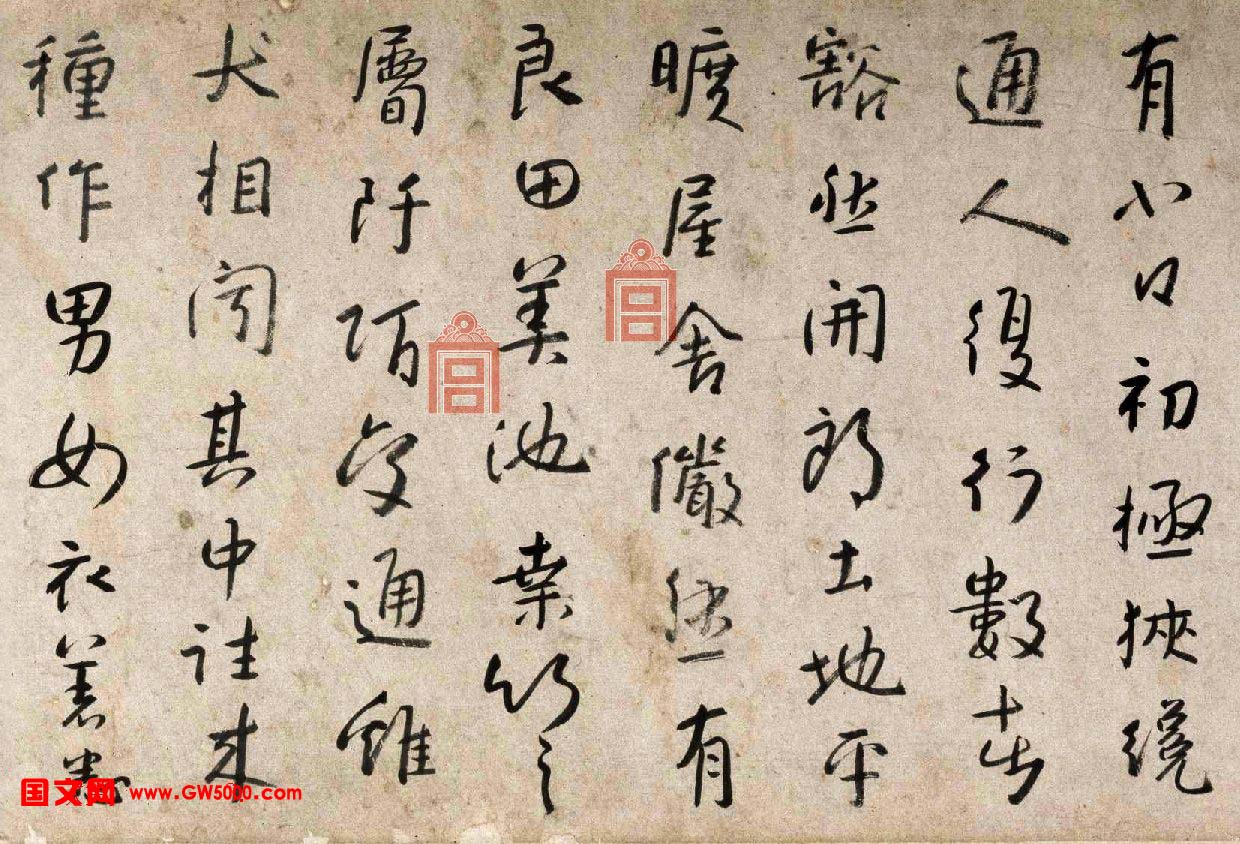 有小口初極狹纔
通人復行數十步
豁然開朗土地平
曠屋舍儼然有
良田美池桑竹之
屬阡陌交通雞
犬相聞其中往來
種作男女衣著悉
国文网 www.GW5000.com